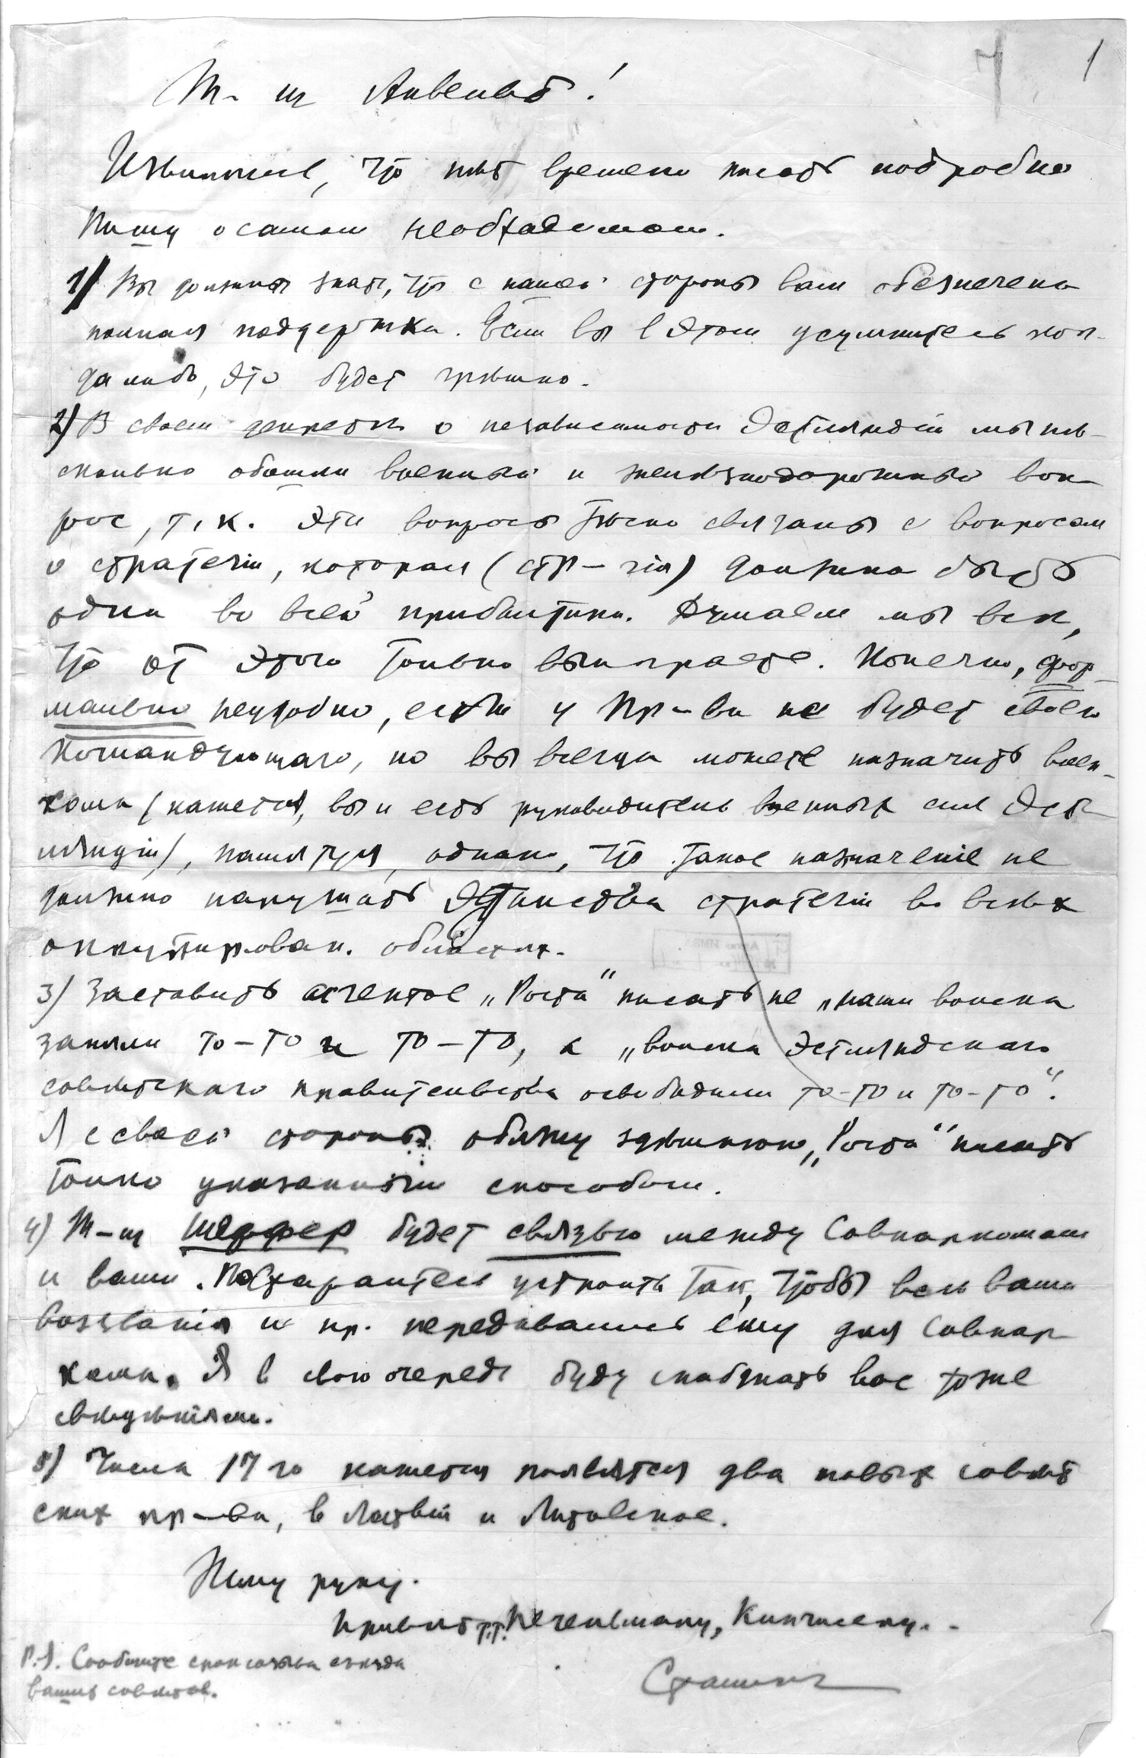 Т-щ Анвельт!
Извиняюсь, что нѣт времени писать подробно
Пишу о самом необходимом.
1) Вы должны знать, что с нашей стороны вам обезпечена
полная поддержка. Если вы в этом усумнитесь ког-
да либо, это будет грѣшно.
2) В своем декретѣ о независимости Эстляндiи мы нѣ-
сколько обошли военный и желѣзнодорожный воп-
рос, т.к. эти вопросы тѣсно связаны с вопросом
о стратегiи, которая (стр-гiя) должна быть
одна во всей прибалтикѣ. Думаем мы всѣ,
что от этого только выиграете. Конечно, фор-
мально неудобно, если у Пр-ва не будет своего
командующаго, но вы всегда можете назначить воен-
кома (кажется, вы и есть руководитель военных сил Эст-
ляндiи), памятуя, однако, что такое назначенiе не
должно нарушать единства стратегiи во всѣх
оккупирован. областях.
3) Заставить агентов „Роста“ писать не „наши войска
заняли то-то и то-то, а „войска Эстляндскаго
совѣтскаго правительства освободили то-то и то-то“.
Я с своей стороны обяжу здѣшнюю „Роста“ писать
только указанным способом.
4) Т-щ Шеффер будет связью между Совнаркомом
и вами. Постарайтесь устроить так, чтобы всѣ ваши
воззванiя и пр. передавались ему для Совнар-
кома. Я в свою очередь буду снабжать вас тоже
свѣдѣнiями.
5) Числа 17го кажется появятся два новых совѣт
ских пр-ва, в Латвiи и Литовское.
Жму руку.
Привѣт т.т. Пегельману, Кингисепу.
Сталин
P.S. Сообщите спис состава съѣзда
ваших совѣтов.